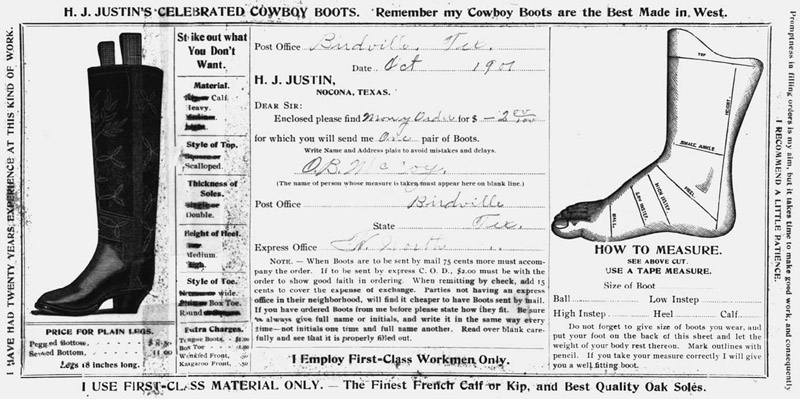 H. J. JUSTIN'S CELEBRATED COWBOY BOOTS. Remember my Cowboy Boots are the Best Made in West.
I HAVE HAD TWENTY YEARS, EXPERIENCE AT THIS KIND OF WORK.
PRICE FOR PLAIN LEGS.
Pegged Bottom,
Sewed Bottom, 11.00
Legs 18 inches long.
Strike out what
You Don't
Want.
Material.
Calf
Heavy.
Medium.
Light.
Style of Top.
Scalloped.
Thickness of
Soles.
Double.
Height of Heel.
Medium.
Style of Toe.
wide.
Box Toe.
Round
Extra Charges.
Tongue Boots, $2.00
Box Toe
Wrinkled Front, .50
Kangaroo Front, .50
Post Office Birdville, Tex.
Date Oct 1901
H. J. JUSTIN,
NOCONA, TEXAS.
DEAR SIR:
Enclosed please find Money Order for $ 2 00/100
for which you will send me One pair of Boots.
Write Name and Address plain to avoid mistakes and delays.
O.B. McCoy.
(The name of person whose measure is taken must appear here on blank line.)
Post Office Birdville
State Tex.
Express Office Ft. Worth
NOTE. — When Boots are to be sent by mail 75 cents more must accom-
pany the order. If to be sent by express C. O. D., $2.00 must be with the
order to show good faith in ordering. When remitting by check, add 15
cents to cover the expense of exchange. Parties not having an express
office in their neighborhood, will find it cheaper to have Boots sent by mail.
If you have ordered Boots from me before please state how they fit. Be sure
to always give full name or initials, and write it in the same way every
time—not initials one time and full name another. Read over blank care-
fully and see that it is properly filled out.
I Employ First-Class Workmen Only.
TOP
HEIGHT
SMALL ANKLE
HEEL
HIGH INSTEP
LOW INSTEP
BALL
HOW TO MEASURE.
SEE ABOVE CUT.
USE A TAPE MEASURE.
Size of Boot
Ball Low Instep
High Instep Heel Calf
Do not forget to give size of boots you wear, and
put your foot on the back of this sheet and let the
weight of your body rest thereon. Mark outlines with
pencil. If you take your measure correctly I will give
you a well fitting boot.
Promptness in filling orders is my aim, but it takes time to make good work, and consequently
I RECOMMEND A LITTLE PATIENCE.
I USE FIRST-CLASS MATERIAL ONLY. — The Finest French Calf or Kip, and Best Quality Oak Soles.